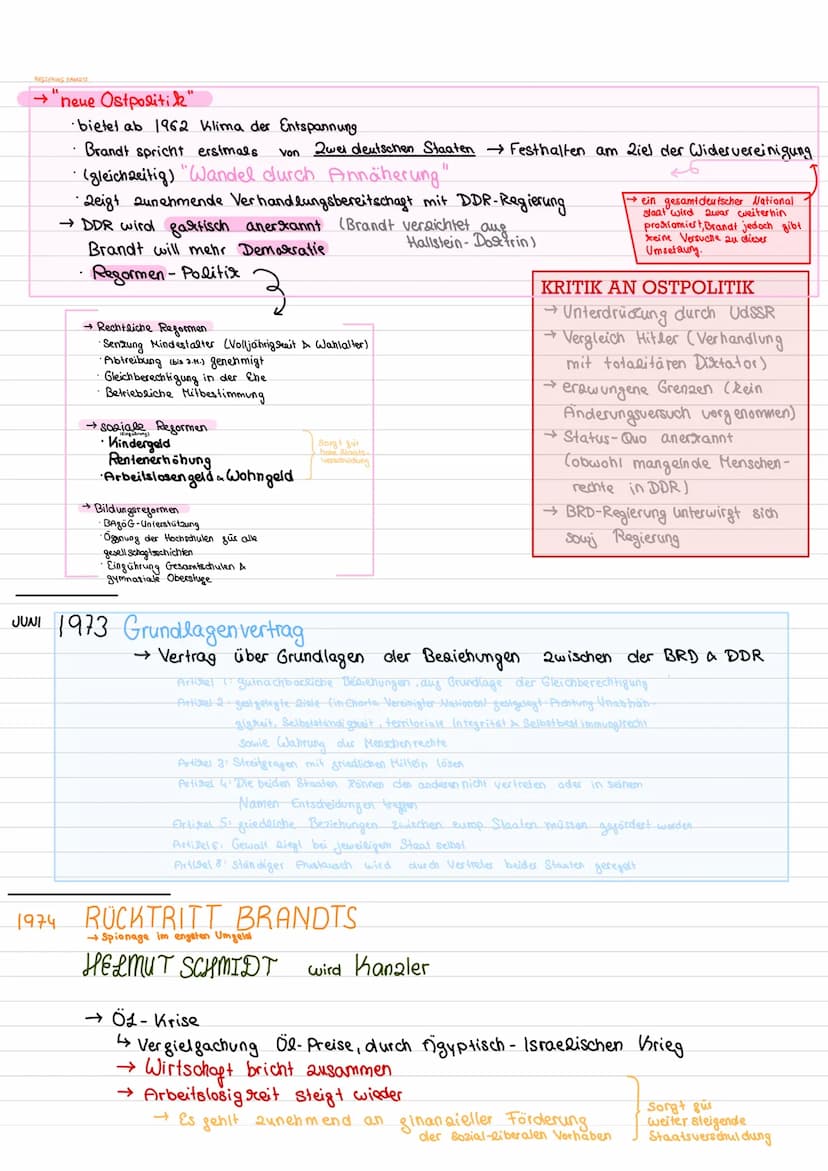 REGIERUNG BRANDTS
→ "neue Ostpolitik"
· bietet ab 1962 Klima der Entspannung
· Brandt spricht erstmals von zwei deutschen Staaten → Festhalten am Ziel der Widervereinigung
· (gleichzeitig) "Wandel durch Annäherung"
· zeigt zunehmende Verhandlungsbereitschaft mit DDR-Regierung
→ DDR wird faktisch anerkannt (Brandt verzichtet auf
Hallstein-Doktrin)
Brandt will mehr Demokratie
· Reformen-Politik
→ ein gesamtdeutscher National
staat wird zwar weiterhin
proklamiert, Brandt jedoch gibt
keine Versuche zu dieser
Umsetzung.
→ Rechtliche Reformen
· Senkung Mindestalter (Volljährigkeit & Wahlalter)
· Abtreibung (bis 3.M.) genehmigt
· Gleichberechtigung in der Ehe
· Betriebliche Mitbestimmung
→ soziale Reformen
(Einführung)
· Kindergeld
Rentenerhöhung
· Arbeitslosengeld & Wohngeld
Sorgt für
hohe Staats-
verschuldung
→ Bildungsreformen
· BAföG-Unterstützung
· Öffnung der Hochschulen für alle
gesellschaftsschichten
· Einführung Gesamtschulen &
gymnasiale Oberstufe
KRITIK AN OSTPOLITIK
→ Unterdrückung durch UdSSR
→ Vergleich Hitler (Verhandlung
mit totalitären Diktator)
→ erzwungene Grenzen (kein
Änderungsversuch vorgenommen)
→ Status-Quo anerkannt
(obwohl mangelnde Menschen-
rechte in DDR)
→ BRD-Regierung unterwirft sich
sowj Regierung
JUNI 1973 Grundlagenvertrag
→ Vertrag über Grundlagen der Beziehungen zwischen der BRD & DDR
Artikel 1: gutnachbarliche Beziehungen, auf Grundlage der Gleichberechtigung
Artikel 2: festgelegte Ziele (in Charta Vereinigter Nationen) festgelegt: Achtung Unabhän-
gigkeit, Selbstständigkeit, territoriale Integrität & Selbstbestimmungsrecht
sowie Wahrung der Menschenrechte
Artikel 3: Streitfragen mit friedlichen Mitteln lösen
Artikel 4: Die beiden Staaten können den anderen nicht vertreten oder in seinem
Namen Entscheidungen treffen
Artikel 5: friedliche Beziehungen zwischen europ Staaten müssen gefördert werden
Artikel 6: Gewalt liegt bei jeweiligem Staat selbst
Artikel 8: Ständiger Austausch wird durch Vertreter beider Staaten geregelt
1974 RÜCKTRITT BRANDTS
→ Spionage im engsten Umfeld
HELMUT SCHMIDT wird Kanzler
→ Öl-Krise
↳ Vervielfachung Öl-Preise, durch Ägyptisch-Israelischen Krieg
→ Wirtschaft bricht zusammen
→ Arbeitslosigkeit steigt wieder
→ Es fehlt zunehmend an finanzieller Förderung
der Sozial-liberalen Vorhaben
Sorgt für
weiter steigende
Staatsverschuldung